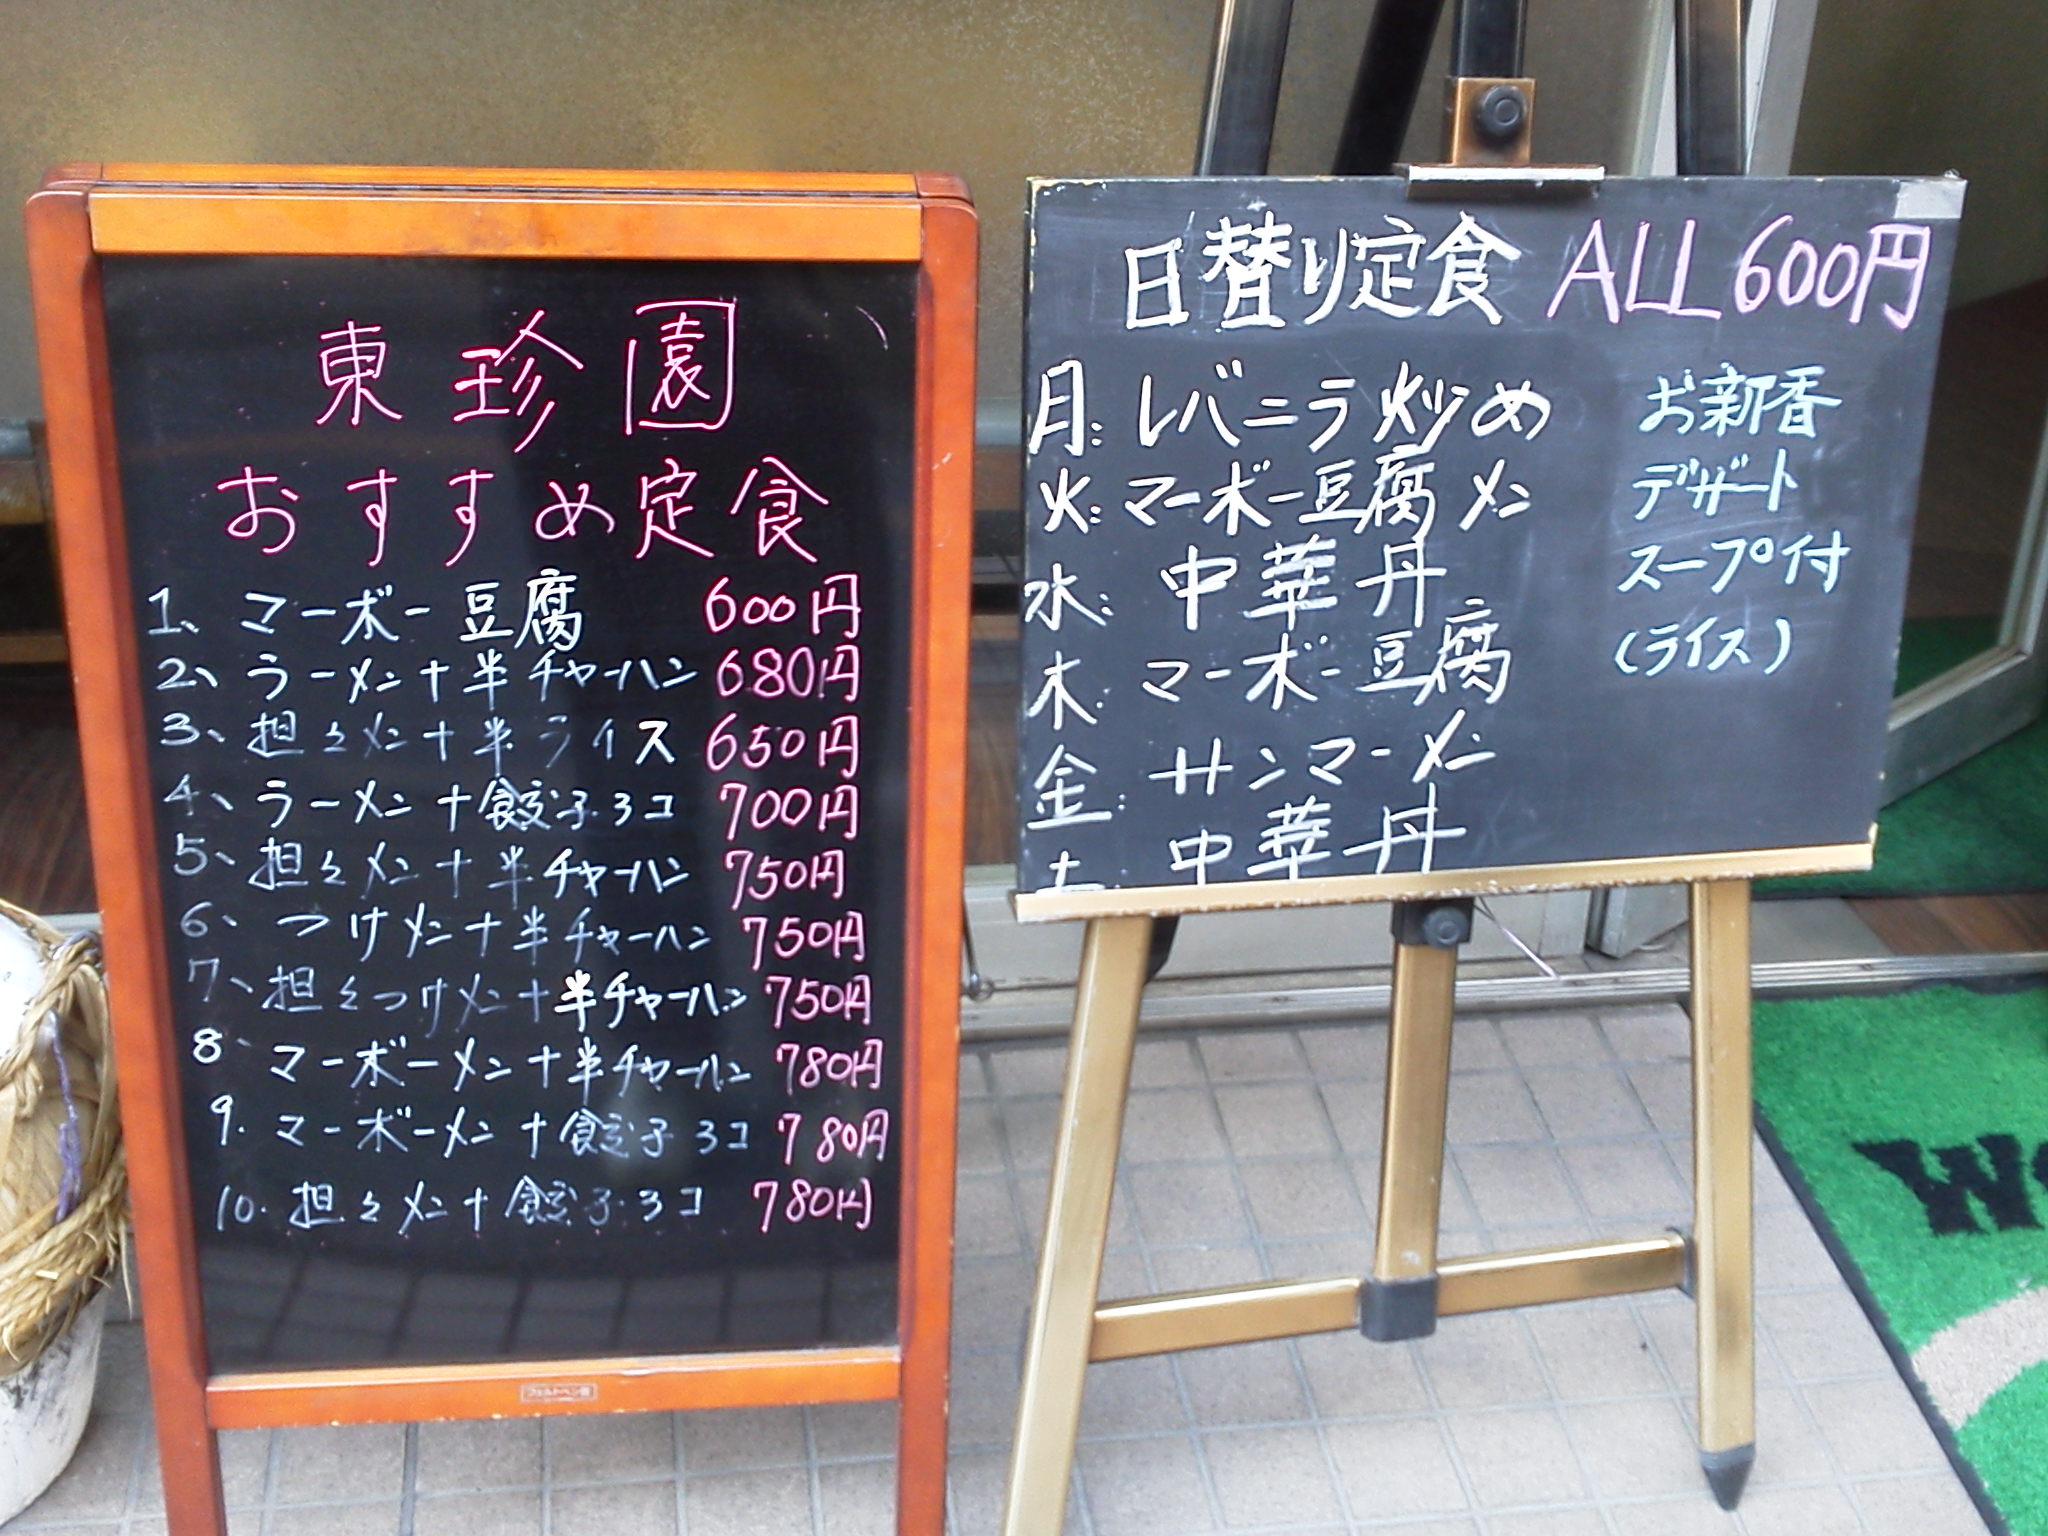 東珍園
おすすめ定食
1、マーボー豆腐 600円
2、ラーメン+半チャーハン 680円
3、担々メン+半ライス 650円
4、ラーメン+餃子3コ 700円
5、担々メン+半チャーハン 750円
6、つけメン+半チャーハン 750円
7、担々つけメン+半チャーハン 750円
8、マーボーメン+半チャーハン 780円
9.マーボーメン+餃子3コ 780円
10.担々メン+餃子3コ 780円
日替り定食 ALL600円
月:レバニラ炒め
火:マーボー豆腐メン
水:中華丹
木:マーボー豆腐
金:サンマーメン
土 中華丹
お新香
デザート
スープ付
(ライス)